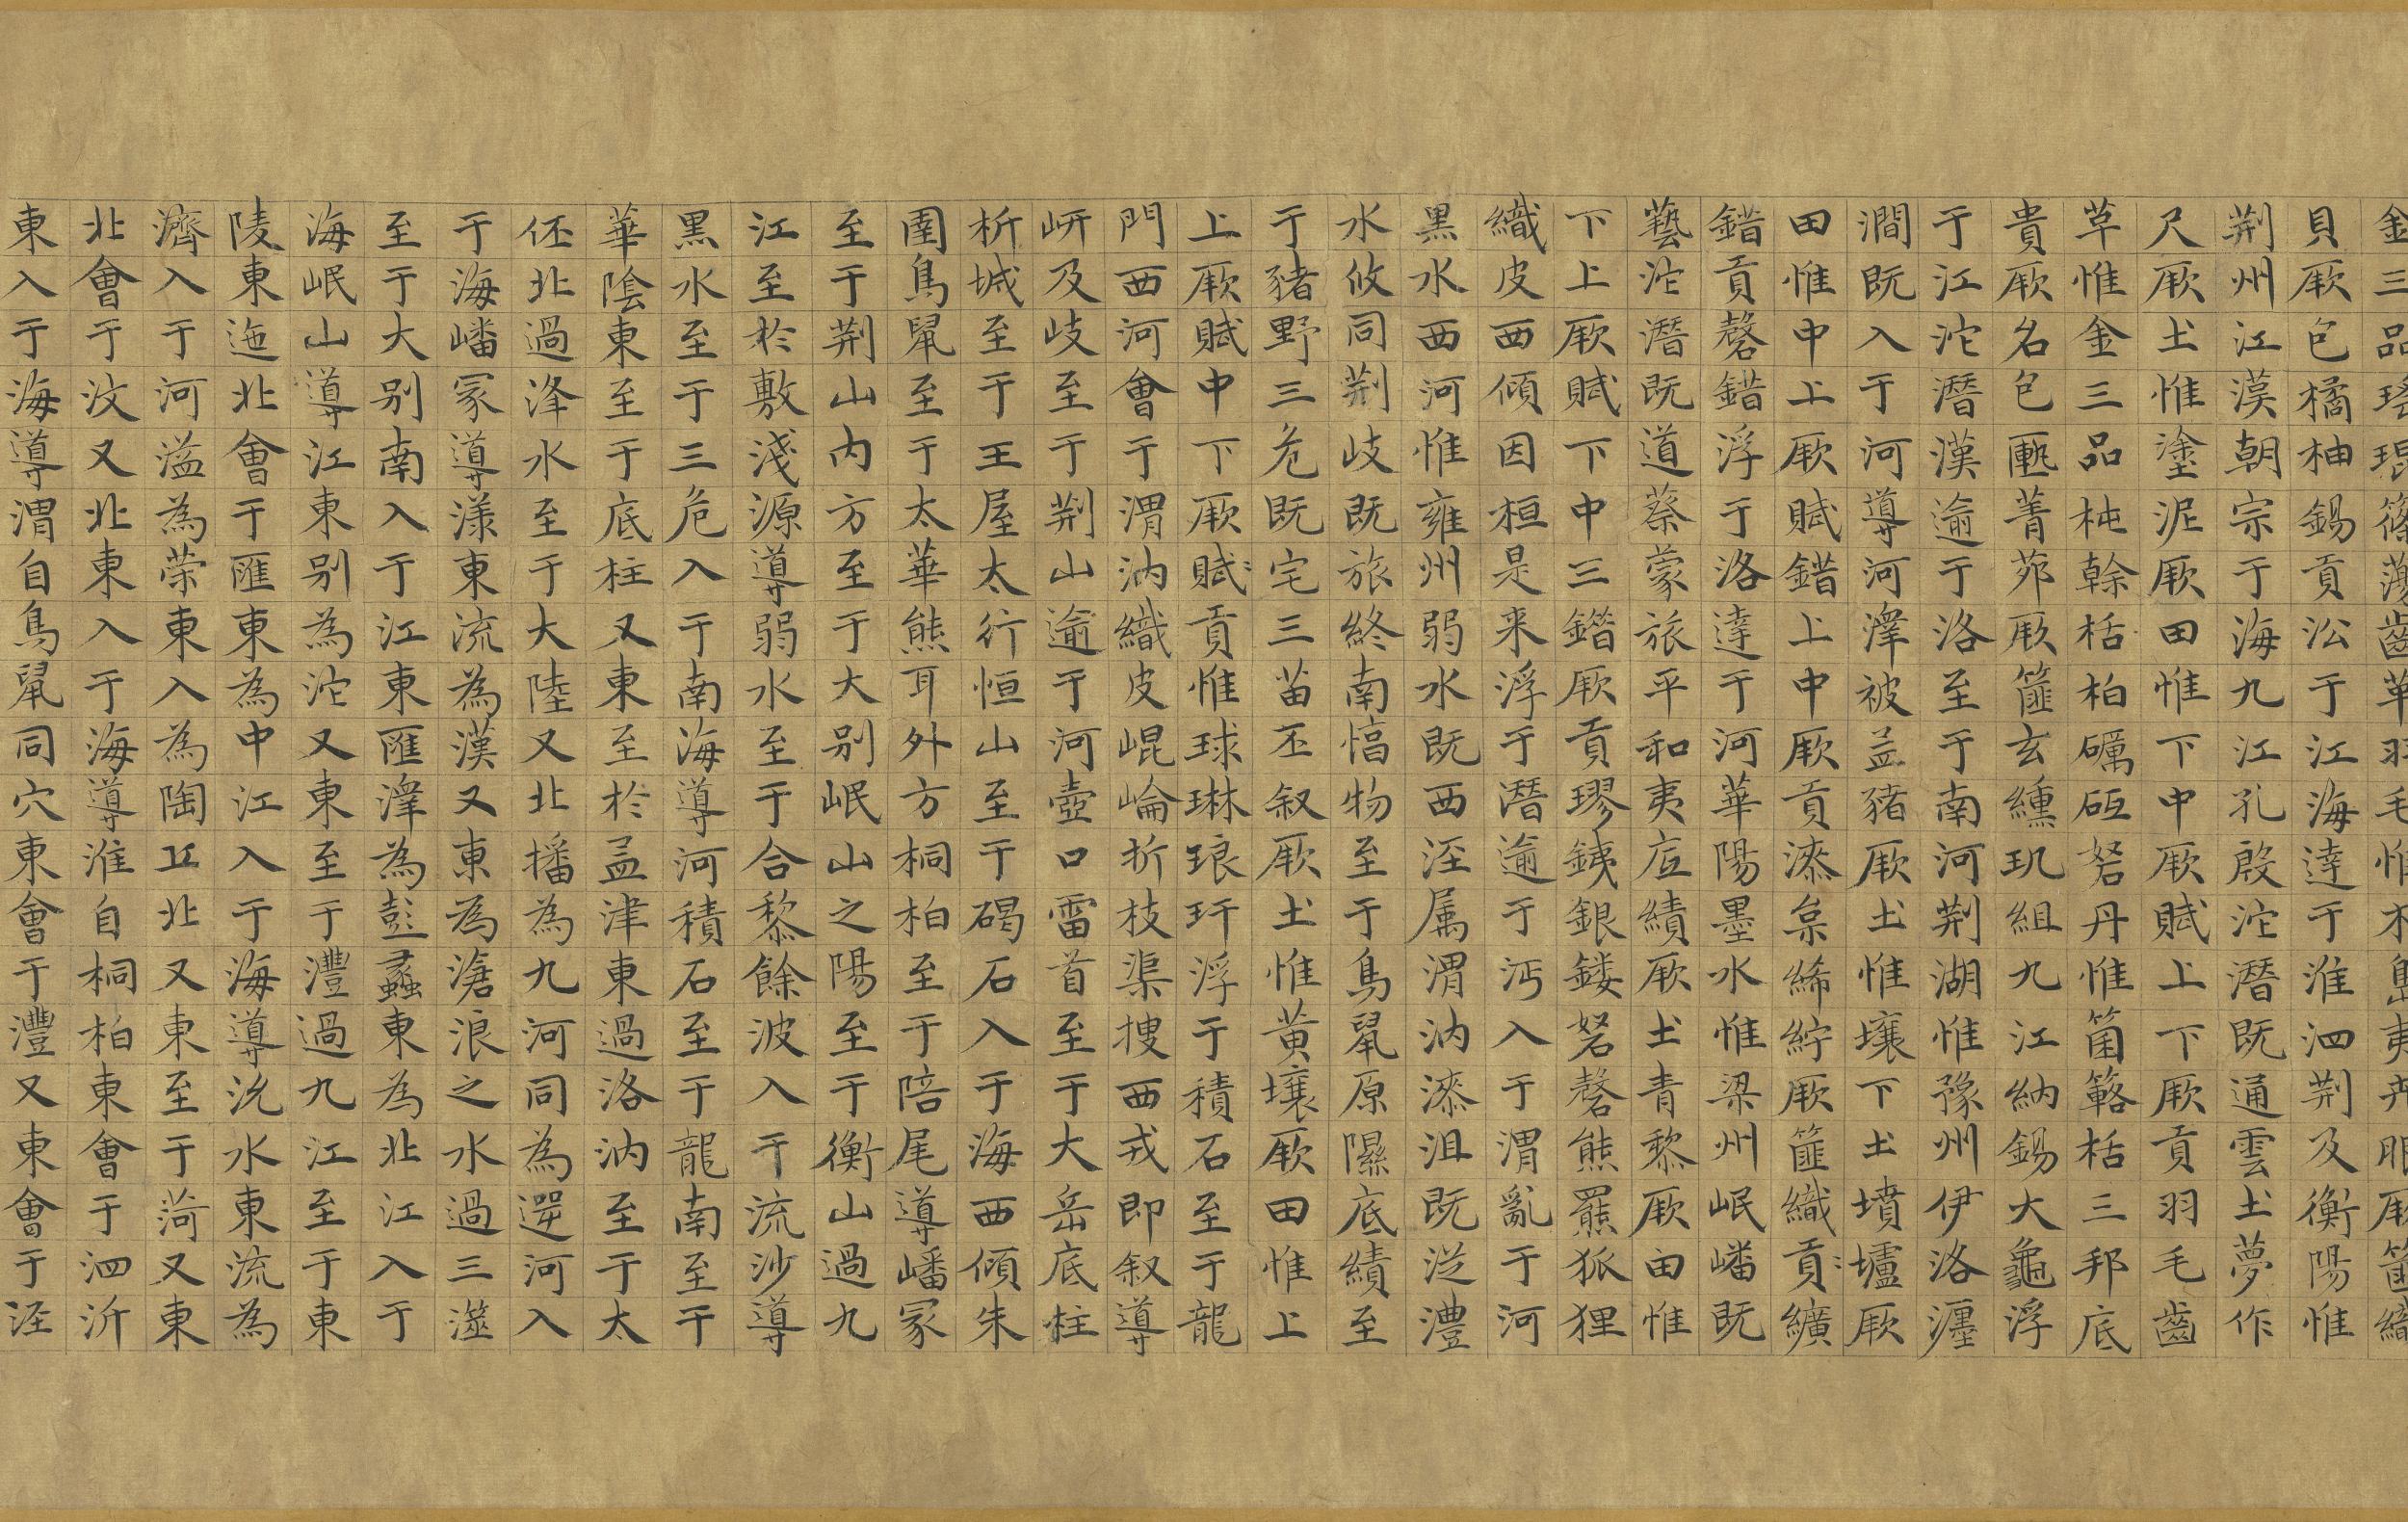 金三品瑤琨篠蕩齒革羽毛惟木島夷卉服厥篚織
貝厥包橘柚錫貢㳂于江海達于淮泗荆及衡陽惟
荆州江漢朝宗于海九江孔殷沱潛既通雲土夢作
尺厥土惟塗泥厥田惟下中厥賦上下厥貢羽毛齒
草惟金三品杶榦栝柏礪砥砮丹惟箘簵栝三邦底
貴厥名包匭菁茆厥篚玄纁玑組九江納錫大龜浮
于江沱潛漢逾于洛至于南河荆湖惟豫州伊洛瀍
澗既入于河導河澤被孟豬厥土惟壤下土墳壚厥
田惟中上厥賦錯上中厥貢漆枲絺紵厥篚織貢纊
錯貢磬錯浮于洛達于河華陽墨水惟梁州岷嶓既
藝沱潛既道蔡蒙旅平和夷底績厥土青黎厥田惟
下上厥賦下中三錯厥貢璆銕銀鏤砮磬熊羆狐狸
織皮西傾因桓是来浮于潛逾于沔入于渭亂于河
黑水西河惟雍州弱水既西涇属渭汭漆沮既從澧
水攸同荆岐既旅終南惇物至于鳥鼠原隰底績至
于豬野三危既宅三苗丕叙厥土惟黄壤厥田惟上
上厥賦中下厥賦貢惟球琳琅玕浮于積石至于龍
門西河會于渭汭織皮崐崘折枝渠搜西戎即叙導
岍及岐至于荆山逾于河壺口雷首至于大岳底柱
析城至于王屋太行恒山至于碣石入于海西傾朱
圉鳥鼠至于太華熊耳外方桐柏至于陪尾導嶓冢
至于荆山内方至于大别岷山之陽至于衡山過九
江至於敷淺源導弱水至于合黎餘波入于流沙導
黑水至于三危入于南海導河積石至于龍南至于
華陰東至于底柱又東至於孟津東過洛汭至于太
伾北過洚水至于大陸又北播為九河同為逆河入
于海嶓冢導漾東流為漢又東為滄浪之水過三澨
至于大别南入于江東匯澤為彭蠡東為北江入于
海岷山導江東别為沱又東至于澧過九江至于東
陵東迤北會于匯東為中江入于海導沇水東流為
濟入于河溢為荣東入為陶丘北又東至于菏又東
北會于汶又北東入于海導淮自桐柏東會于泗沂
東入于海導渭自鳥鼠同穴東會于灃又東會于涇